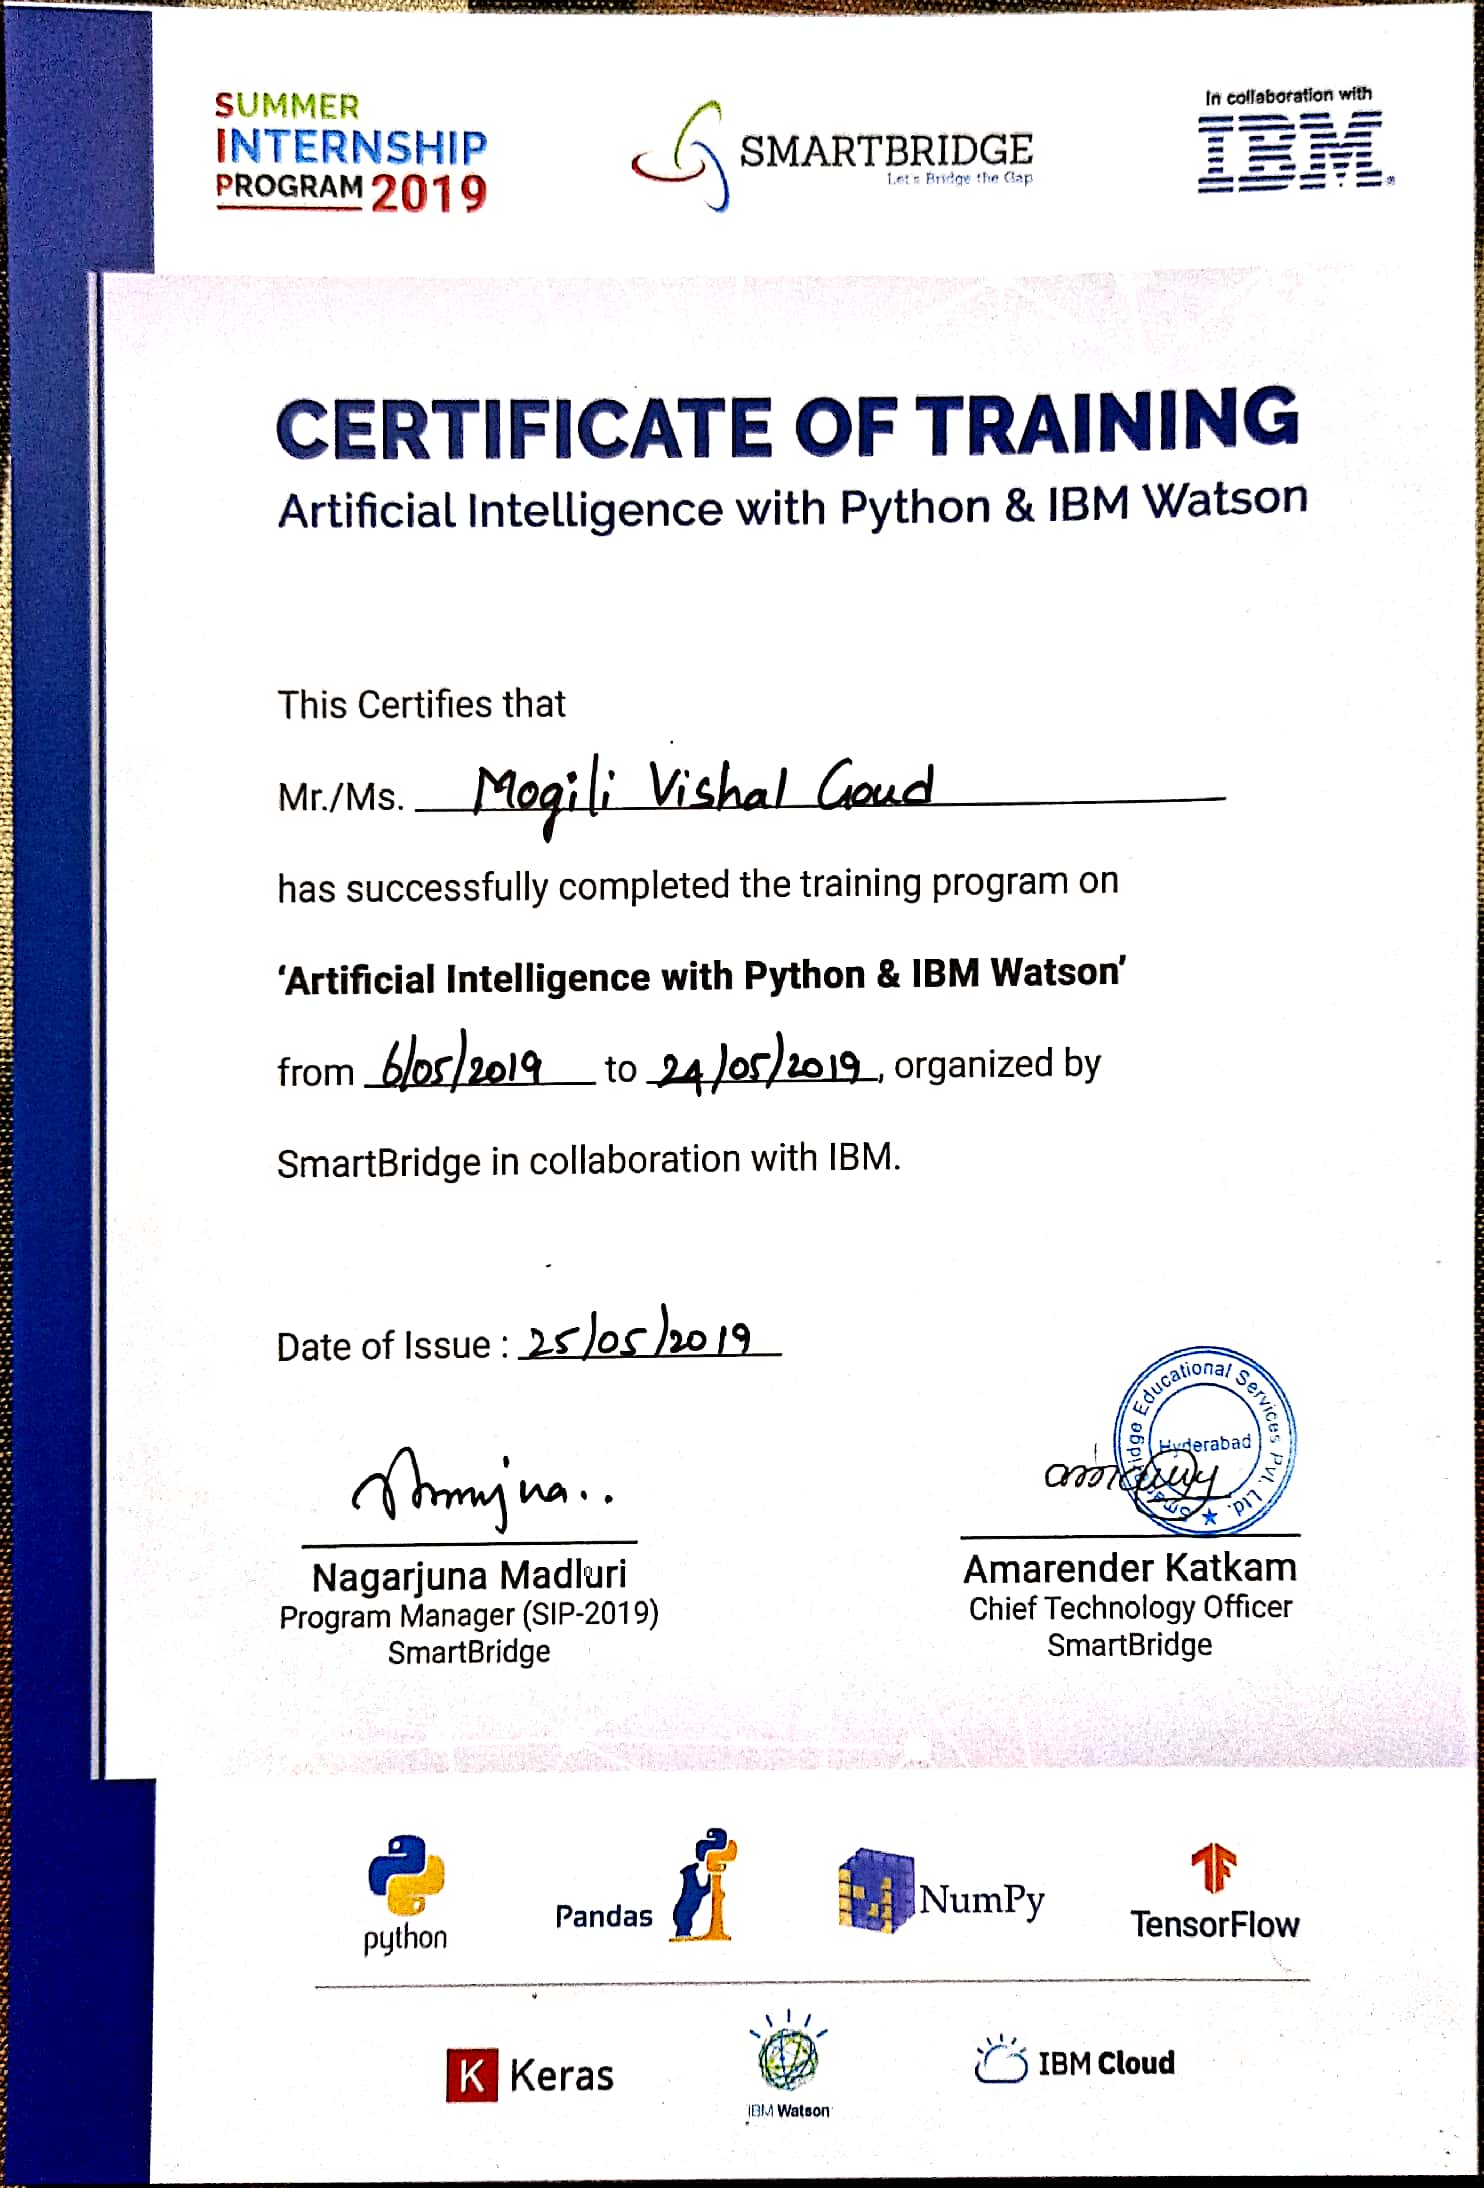 SUMMER
INTERNSHIP
PROGRAM 2019
SMARTBRIDGE
Let's Bridge the Gap
In collaboration with
IBM
CERTIFICATE OF TRAINING
Artificial Intelligence with Python & IBM Watson
This Certifies that
Mr./Ms. Mogili Vishal Goud
has successfully completed the training program on
‘Artificial Intelligence with Python & IBM Watson’
from 6/05/2019 to 24/05/2019, organized by
SmartBridge in collaboration with IBM.
Date of Issue : 25/05/2019
SmartBridge Educational Services Pvt. Ltd.
Hyderabad
Nagarjuna Madluri
Program Manager (SIP-2019)
SmartBridge
Amarender Katkam
Chief Technology Officer
SmartBridge
python
Pandas
NumPy
TensorFlow
K Keras
IBM Watson
IBM Cloud